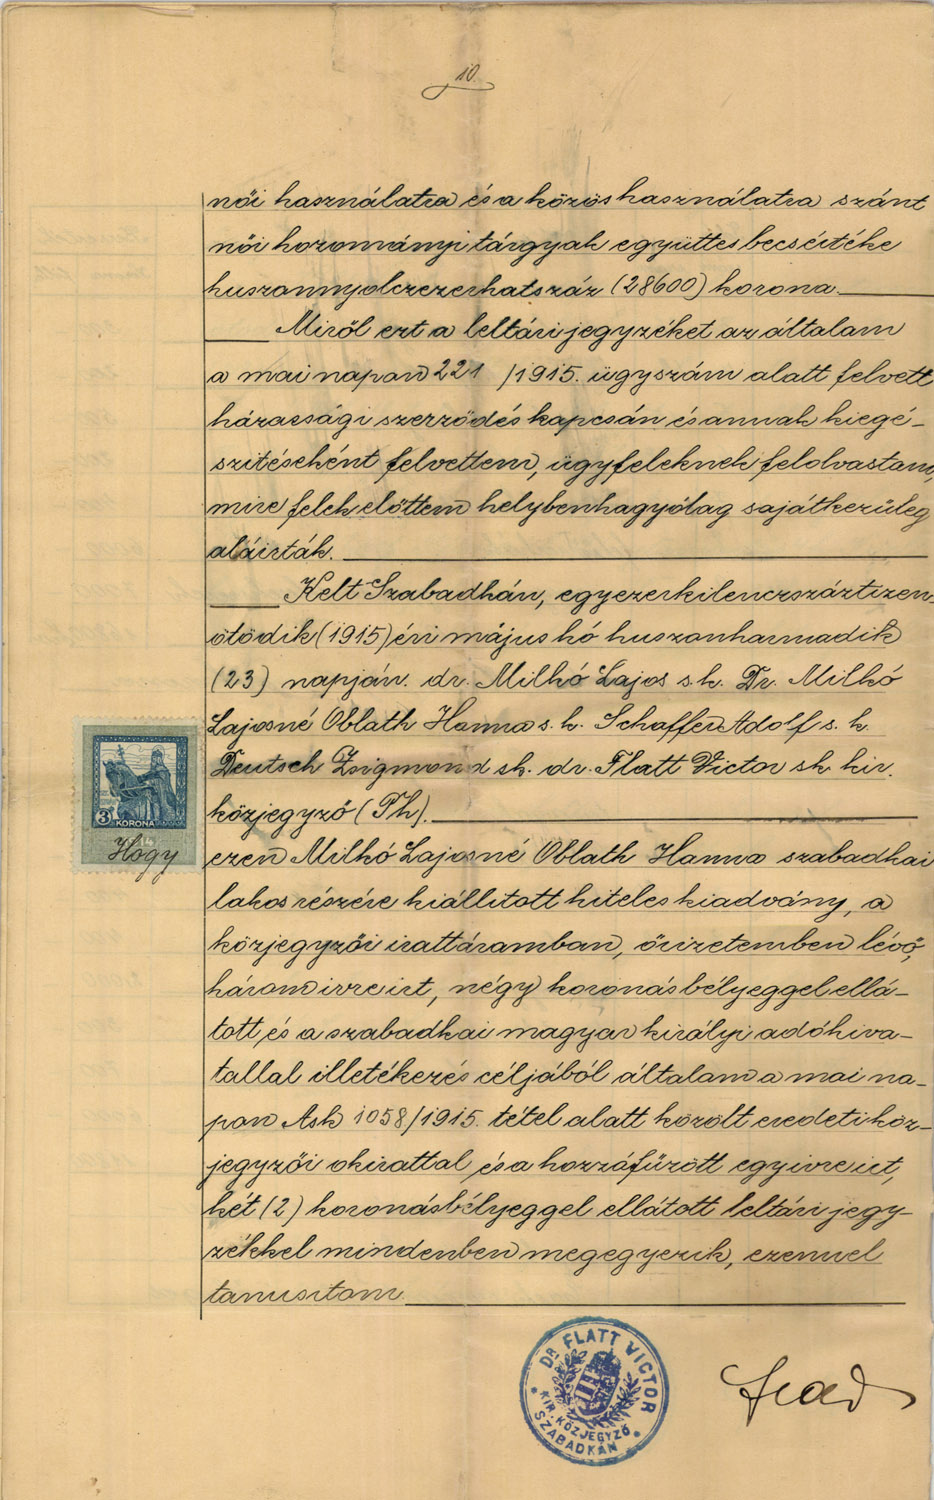 10.
női használatra és a közös használatra szánt
női hozományi tárgyak együttes becsértéke
huszonnyolczezerhatszáz (28600) korona.
Miről ezt a leltári jegyzéket az általam
a mai napon 221 /1915. ügyszám alatt felvett
házassági szerződés kapcsán és annak kiegé-
szitéseként felvettem, ügyfeleknek felolvastam,
mire felek előttem helybenhagyólag sajátkezűleg
aláirták.
Kelt Szabadkán, egyezerkilenczszáztizen-
ötödik (1915) évi május hó huszonharmadik
(23) napján. dr. Milkó Lajos s.k. Dr. Milkó
Lajosné Oblath Hanna s. k. Schaffer Adolf s. k.
Deutsch Zsigmond sk. dr. Flatt Victor sk kir.
közjegyző (Ph).
3 KORONA
Hogy
ezen Milkó Lajosné Oblath Hanna szabadkai
lakos részére kiállított hiteles kiadvány, a
közjegyzői irattáramban, őrizetemben lévő,
három ivre irt, négy koronás bélyeggel ellá-
tott és a szabadkai magyar királyi adóhiva-
tallal illetékezés céljából általam a mai na-
pon Ask 1058/1915. tétel alatt közölt eredeti köz-
jegyzői okirattal és a hozzáfűzött egy ivre irt,
két (2) koronás bélyeggel ellátott leltári jegy-
zékkel mindenben megegyezik, ezennel
tanusitom.
DR FLATT VICTOR
KIR. KÖZJEGYZŐ
SZABADKÁN